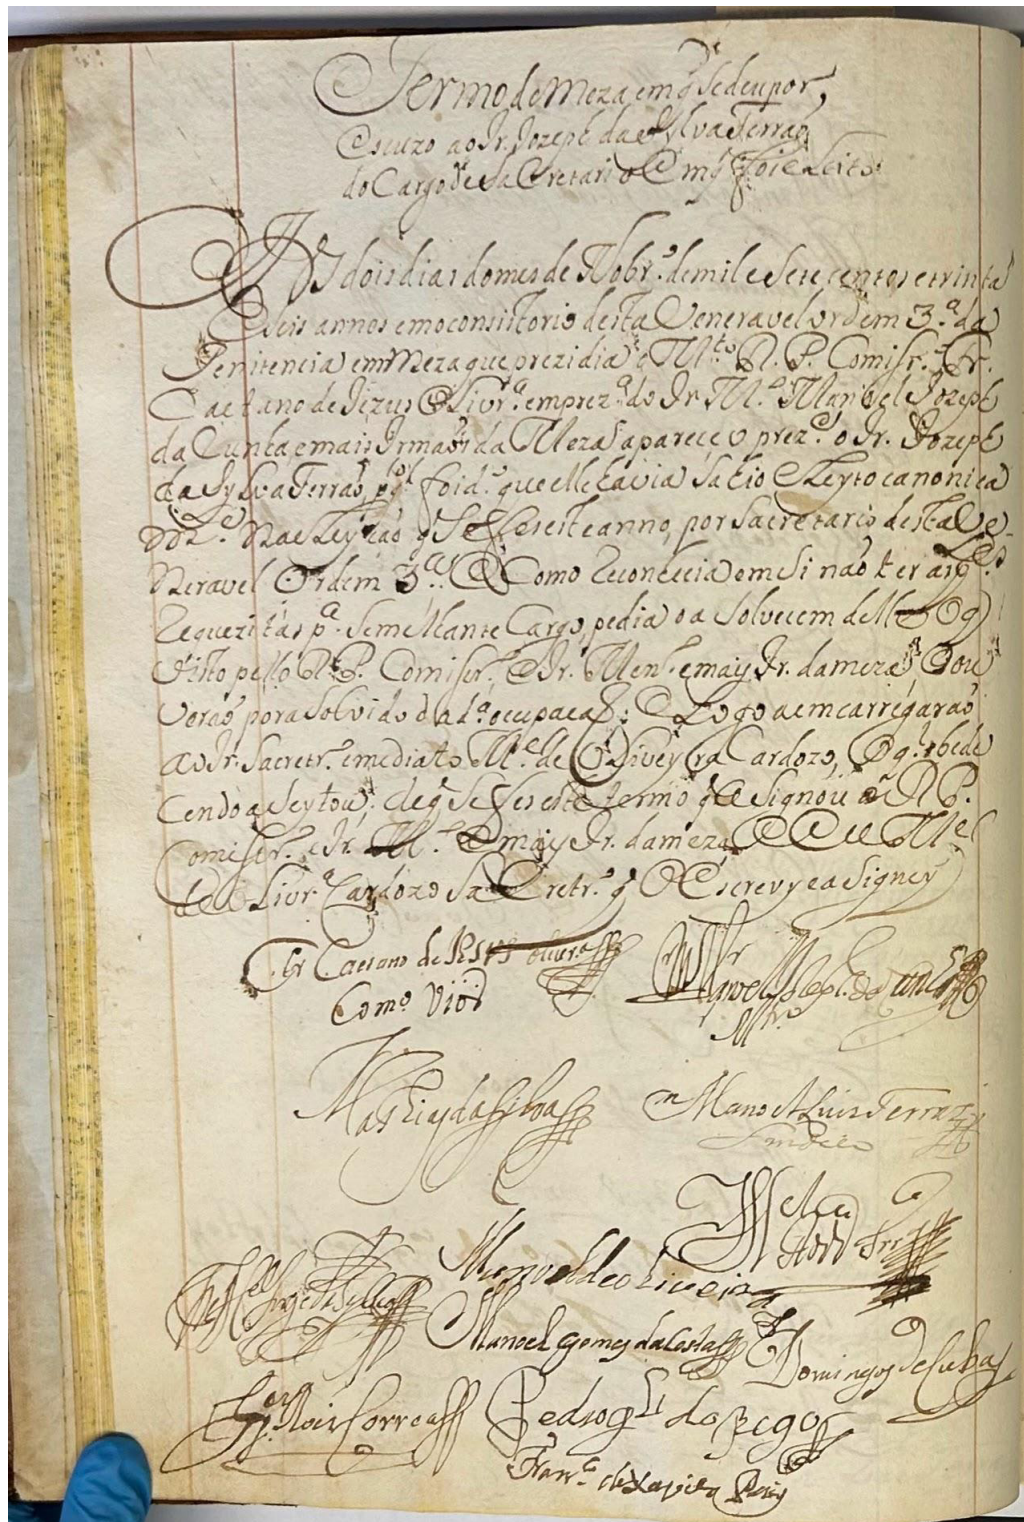 Termo de Meza em q̃ se deu por
escuzo ao Ir. Jozeph da Sylva Ferraõ
do Cargo de SaCretario Em q̃ foi eleito
Aos dois dias do mes de Nobr.º de mil e Sete centos e trinta
e seis annos em o consistorio desta Veneravel ordem 3.ª da
Penitencia em Meza que prezidia o M.to R. P. Comisr.º Fr.
Caetano de Jezus e Olivr.ª em prez.ª do Ir. M.º Manoel Jozeph
da Cunha, e mais Irmaõs da Meza apareçeo prez.e o Ir. Jozeph
da Sylva Ferraõ, p.lo qual foi d.º que elle havia sahio Eleyto canonica
m.te na eleyçaõ q̃ Se fes este anno, por Sacretario desta Ve-
neravel Ordem 3.ª E Como Reconhecia em Si naõ ter as
Requezitas p.ª Semelhante Cargo, pedia o a Solvecem delle O q̃
visto pello R. P. Comisr.º e Ir. Men.º e mais Ir. da meza, o ou
veraõ por aSolvido da d.ª ocupaçaõ; E Logo a emcarregaraõ
ao Ir. Sacretr.º emediato M.el de Oliveyra Cardozo, O q̃ obede
cendo aSeytou; de q̃ Se fes este termo q̃ aSignou o R. P.
Comisr.º e Ir. M.º e mais Ir. da meza E Eu M.el
de Olivr.ª Cardozo SaCretr.º q̃ O Escrevy e aSigney
Fr. Caetano de Jesus Olivr.ª
Com.º Vizor
Manoel Joseph da Cunha
M.º
Mathias da Silva
Manoel Luis Ferraz
Sindico
Manoel de oliveira
Manoel Gomes da Costa
Domingos de Cubas
Correa
Pedro glz do Rego
Fran.co de